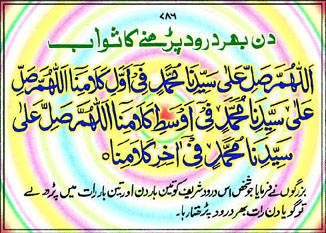 ۷۸۶
دن بھر درود پڑھنے کا ثواب
اَللّٰهُمَّ صَلِّ عَلٰى سَيِّدِنَا مُحَمَّدٍ فِىْ اَوَّلِ كَلَامِنَا اَللّٰهُمَّ صَلِّ
عَلٰى سَيِّدِنَا مُحَمَّدٍ فِىْ اَوْسَطِ كَلَامِنَا اَللّٰهُمَّ صَلِّ عَلٰى
سَيِّدِنَا مُحَمَّدٍ فِىْ اٰخِرِ كَلَامِنَا ○
بزرگوں نے فرمایا جو شخص اس درود شریف کو تین بار دن اور تین بار رات میں پڑھ لے
تو گویا دن رات بھر درود پڑھتا رہا۔